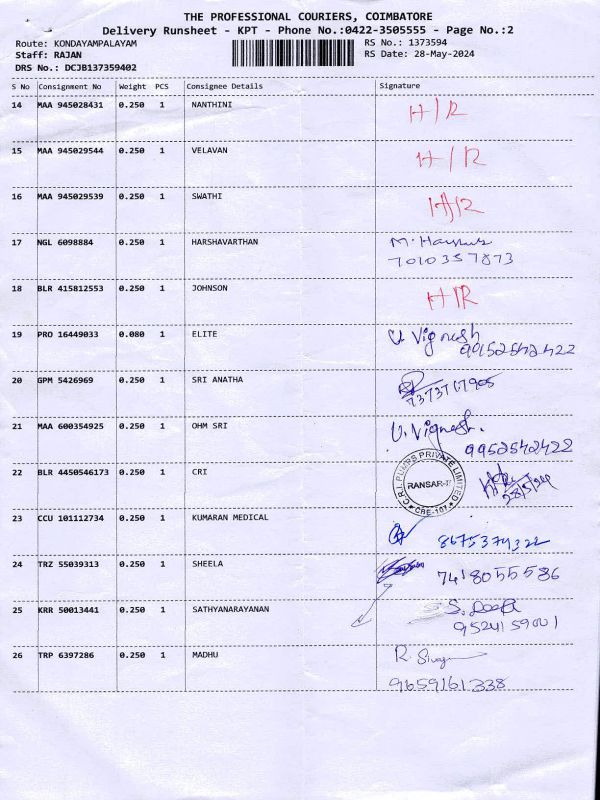 THE PROFESSIONAL COURIERS, COIMBATORE
Delivery Runsheet - KPT - Phone No.:0422-3505555 - Page No.:2
Route: KONDAYAMPALAYAM
RS No.: 1373594
Staff: RAJAN
RS Date: 28-May-2024
DRS No.: DCJB137359402
S No Consignment No Weight PCS Consignee Details Signature
14 MAA 945028431 0.250 1 NANTHINI H/R
15 MAA 945029544 0.250 1 VELAVAN H/R
16 MAA 945029539 0.250 1 SWATHI H/R
17 NGL 6098884 0.250 1 HARSHAVARTHAN
7010357873
18 BLR 415812553 0.250 1 JOHNSON H/R
19 PRO 16449033 0.080 1 ELITE U. Vignesh
9952542422
20 GPM 5426969 0.250 1 SRI ANATHA
7373717905
21 MAA 600354925 0.250 1 OHM SRI U. Vignesh.
9952542422
22 BLR 4450546173 0.250 1 CRI
C.R.I. PUMPS PRIVATE LIMITED
CBE-107
23 CCU 101112734 0.250 1 KUMARAN MEDICAL
24 TRZ 55039313 0.250 1 SHEELA
7418055586
25 KRR 50013441 0.250 1 SATHYANARAYANAN
9524159001
26 TRP 6397286 0.250 1 MADHU
9659161338